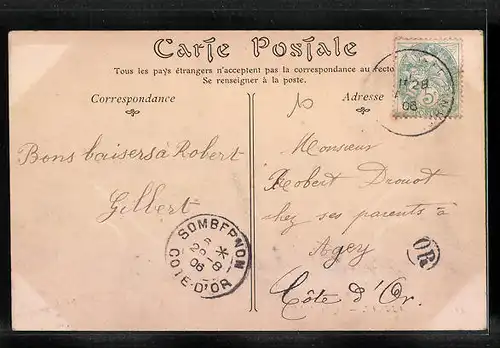 Carte Postale
Tous les pays étrangers n'acceptent pas la correspondance au recto
Se renseigner à la poste.
Correspondance
Adresse
Bons baisers à Robert
Gilbert
Monsieur
Robert Drouot
chez ses parents à
Agey
Côte d'Or.
SOMBERNON
06
COTE-D'OR
28
06
5
OR